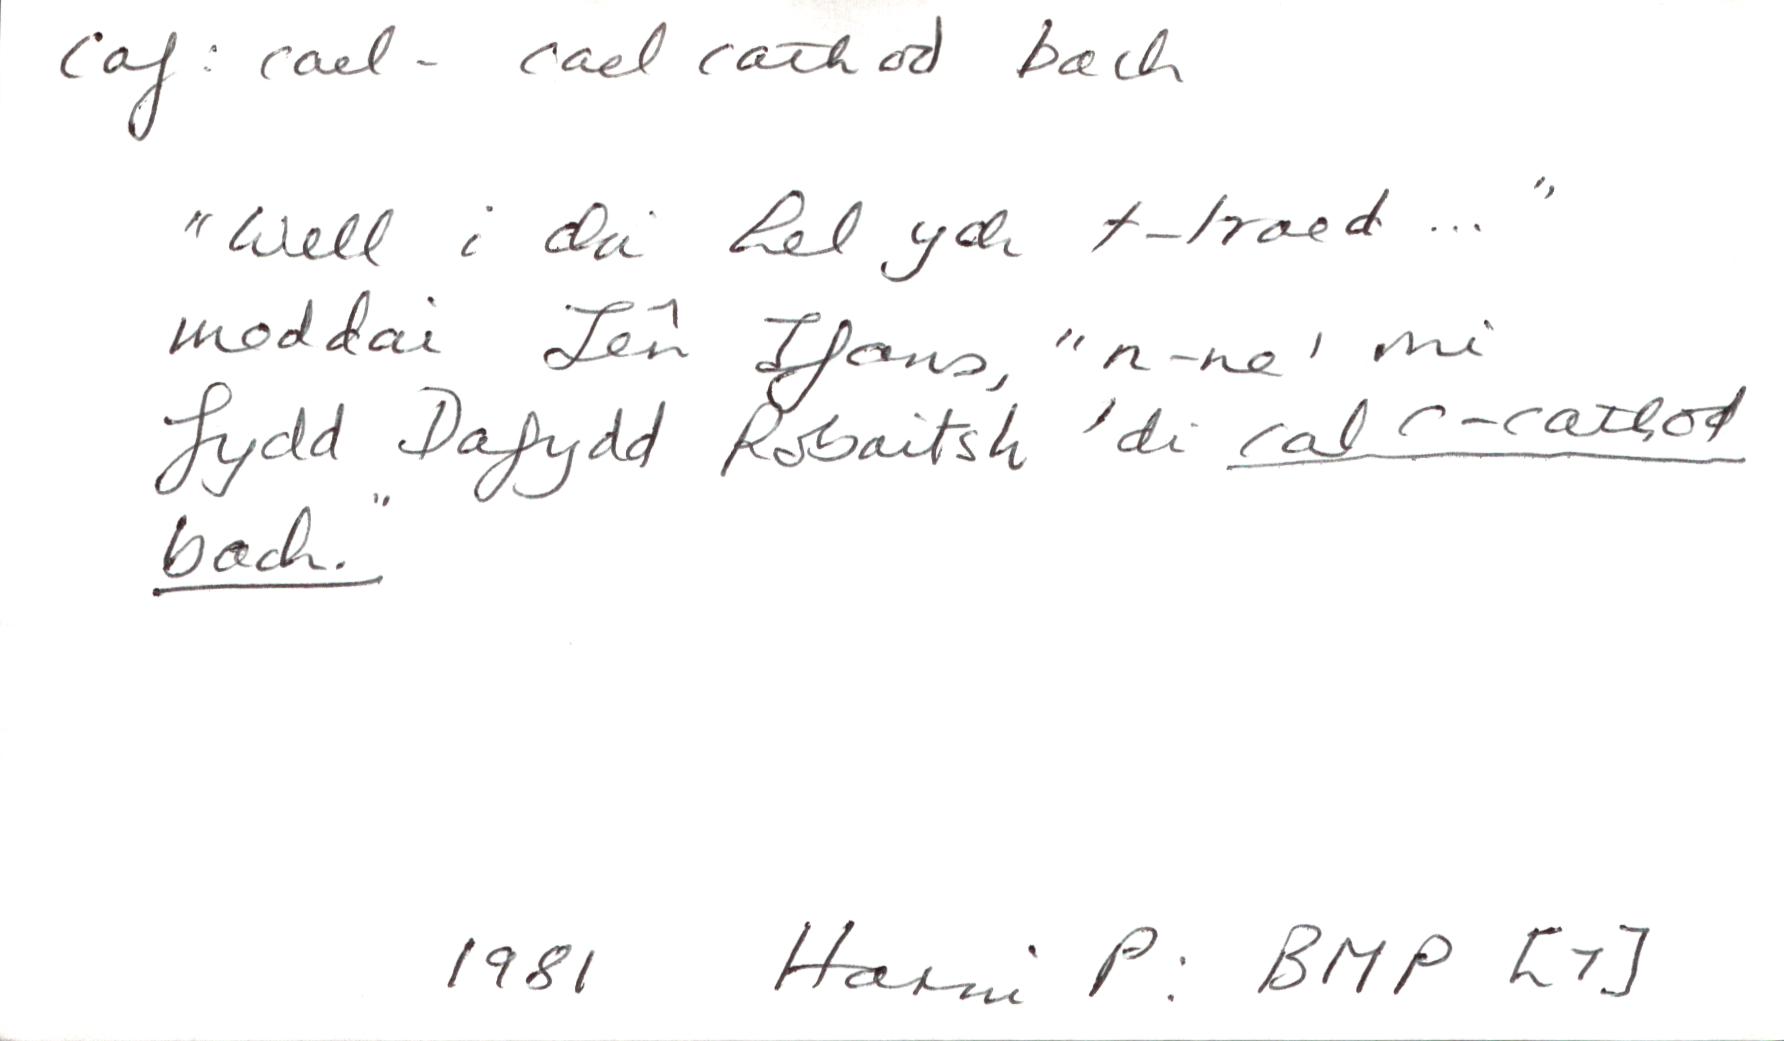 caf: cael - cael cathod bach
"Well i chi hel ych t-traed ..."
moddai Jên Ifans, "n-ne' mi
fydd Dafydd Robaitsh 'di cal c-cathod
bach."
1981 Harri P: BMP [7]